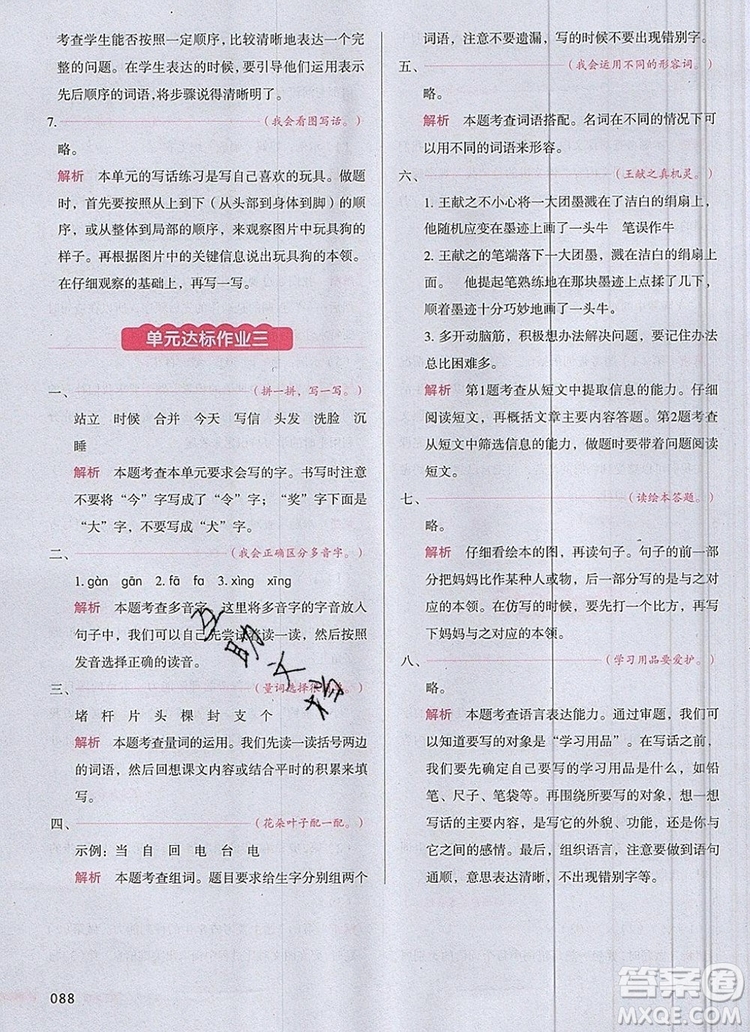 考查学生能否按照一定顺序，比较清晰地表达一个完
整的问题。在学生表达的时候，要引导他们运用表示
先后顺序的词语，将步骤说得清晰明了。
7.（我会看图写话。）
略。
解析 本单元的写话练习是写自己喜欢的玩具。做题
时，首先要按照从上到下（从头部到身体到脚）的顺
序，或者从局部到整体的顺序，来观察图中玩具狗的
样子。再根据图片中的关键信息说出玩具狗的本领。
在仔细观察的基础上，再写一写。
单元达标作业三
一、（拼一拼，写一写。）
站立 时候 合并 今天 写信 头发 洗脸 沉
睡
解析 本题考查本单元要求会写的字。书写时注意
不要将“今”字写成了“令”字；“奖”字下面是
“大”字，不要写成“犬”字。
二、（我会正确区分多音字。）
1. gàn gān 2. fā fà 3. xìng xīng
解析 本题考查多音字。这里将多音字的字音放入
句子中，我们可以自己先尝试着读一读，然后按照
发音选择正确的读音。
三、（量词选择
堵 杆 片 头 棵 封 支 个
解析 本题考查量词的运用。我们先读一读括号两边
的词语，然后回想课文内容或结合平时的积累来填一
填。
四、（花朵叶子配一配。）
示例：当 自 回 电 台 电
解析 本题考查组词。题目要求给生字分别组两个
词语，注意不要遗漏，写的时候不要出现错别字。
五、（我会运用不同的形容词。）
略。
解析 本题考查词语搭配。名词在不同的情况下可
以用不同的词语来形容。
六、（王献之真机灵。）
1. 王献之不小心将一大团墨溅在了洁白的绢扇上，
他随机应变在墨迹上画了一头牛 笔误作牛
2. 王献之的笔端落下一大团墨，溅在洁白的绢扇上
面。 他提起笔熟练地在那块墨迹上画了一头牛，
使得墨迹十分巧妙地变成了一头牛
3. 多开动脑筋，积极想办法解决问题，办法总
总比困难多。
解析 第1题考查从短文中提取信息的能力。仔细
阅读短文，再概括文章主要内容答题。第2题考查
从短文中筛选信息的能力，做题时要带着问题阅读
短文。
七、（读绘本答题。）
略。
解析 仔细看绘本的图，再读句子。句子的前面一
部分把妈妈比作某种人或物，后面一部分写出了妈
妈与之对应的本领。在仿写的时候，前面一部分要
把妈妈比作一个人或一个事物，后面一部分要写一
下妈妈与之对应的本领。
八、（学习用品要爱护。）
略。
解析 本题考查语言表达能力。通过审题，我们可
以知道要写的对象是“学习用品”，那么写的时候，
一定要先想好自己要写的学习用品是什么，如铅
笔、尺子、笔袋等。再想好要写它的哪些方面，比
如可以写它的外貌、功能，还可以写你与
它之间的感情。最后，组织语言，注意写的时候语句
通顺，意思表达清晰，不出现错别字等。
互助文档
088
答案圈
MXQE.COM